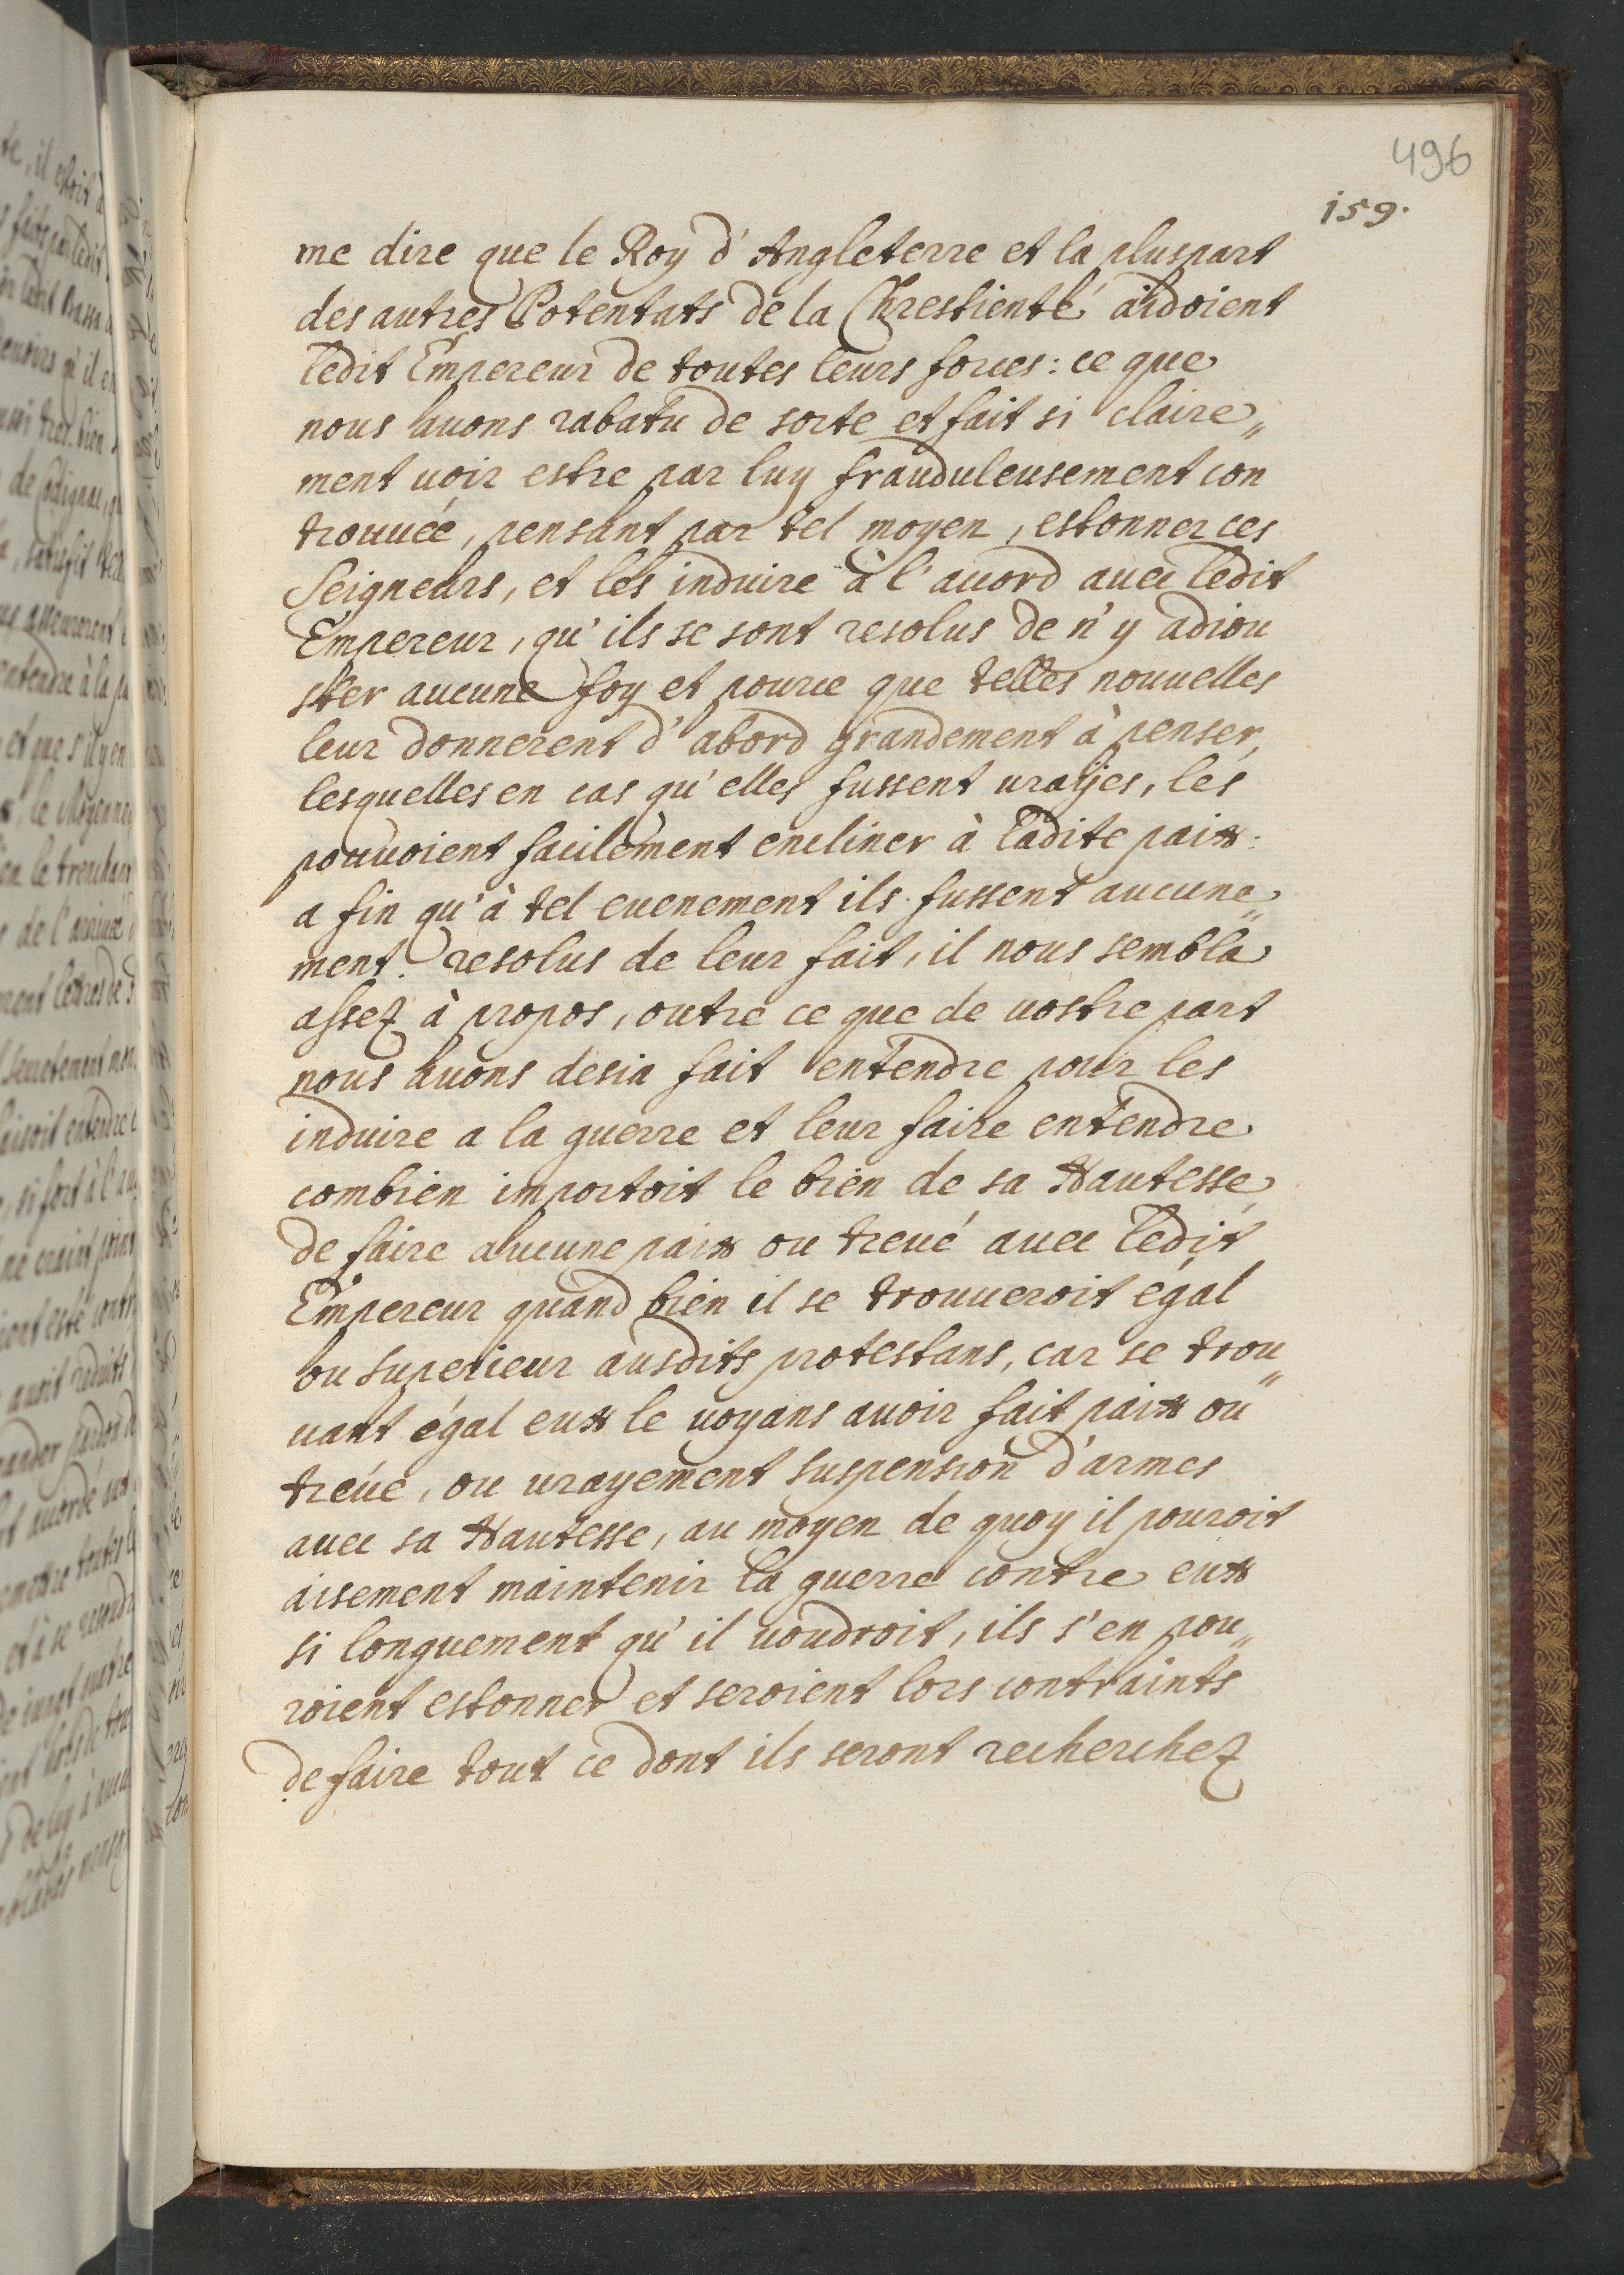 496
159.
me dire que le Roy d'Angleterre et la pluspart
des autres Potentats de la Chrestienté aidoient
ledit Empereur de toutes leurs forces: ce que
nous auons rabatu de sorte et fait si claire„
ment uoir estre par luy frauduleusement con
trouuée, pensant par tel moyen, estonner ces
Seigneurs, et les induire à l'accord auec ledit
Empereur, qu'ils se sont resolus de n'y adiou
ster aucune foy et pource que telles nouuelles
leur donnerent d'abord grandement à penser,
lesquelles en cas qu'elles fussent urayes, les
pouuoient facilement encliner à ladite paix:
a fin qu'à tel euenement ils fussent aucune„
ment resolus de leur fait, il nous sembla
assez à propos, outre ce que de uostre part
nous auons desia fait entendre pour les
induire a la guerre et leur faire entendre
combien importoit le bien de sa Hautesse,
de faire aucune paix ou treue auec ledit
Empereur quand bien il se trouueroit egal
ou superieur ausdits protestans, car se trou„
uant égal eux le uoyans auoir fait paix ou
tréue, ou urayement suspension d'armes
auec sa Hautesse, au moyen de quoy il pouroit
aisement maintenir la guerre contre eux
si longuement qu'il uoudroit, ils s'en pou„
roient estonner et seroient lors contraints
de faire tout ce dont ils seront recherchez